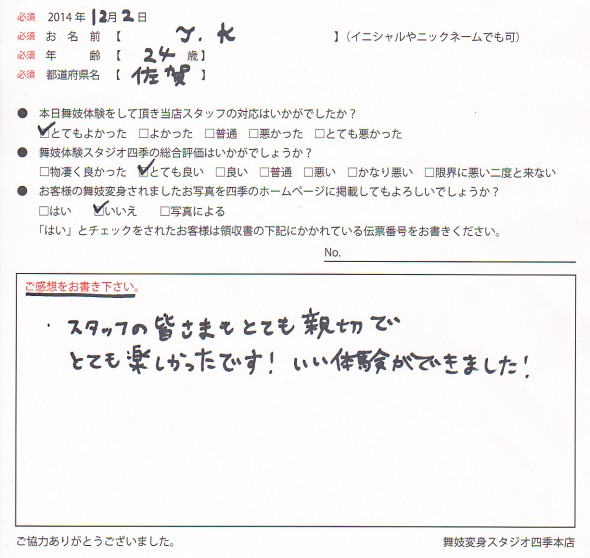 必須 2014年 12月 2日
必須 お 名 前【 J. K 】(イニシャルやニックネームでも可)
必須 年 齢【 24 歳】
必須 都道府県名【 佐賀 】
● 本日舞妓体験をして頂き当店スタッフの対応はいかがでしたか?
☑とてもよかった □よかった □普通 □悪かった □とても悪かった
● 舞妓体験スタジオ四季の総合評価はいかがでしょうか?
□物凄く良かった ☑とても良い □良い □普通 □悪い □かなり悪い □限界に悪い二度と来ない
● お客様の舞妓変身されましたお写真を四季のホームページに掲載してもよろしいでしょうか?
□はい ☑いいえ □写真による
「はい」とチェックをされたお客様は領収書の下記にかかれている伝票番号をお書きください。
No.
ご感想をお書き下さい。
・スタッフの皆さまもとても親切で
とても楽しかったです! いい体験ができました!
ご協力ありがとうございました。 舞妓変身スタジオ四季本店